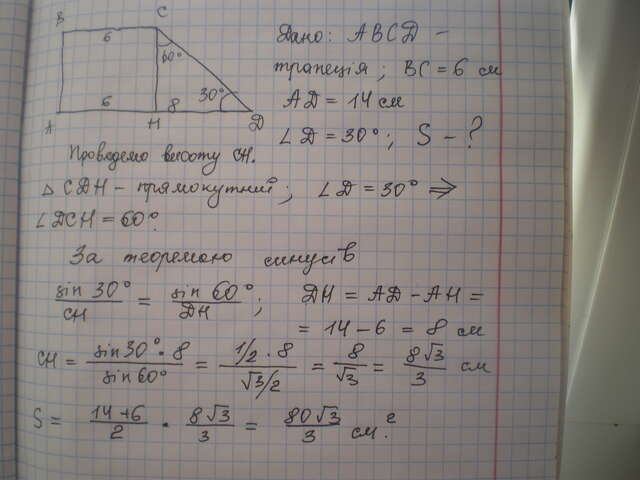 B C
6
60°
6 8 30°
A H D
Дано: ABCD –
трапеція; BC = 6 см
AD = 14 см
∠D = 30°; S – ?
Проведемо висоту CH.
△ CDH – прямокутний; ∠D = 30° ⇒
∠DCH = 60°.
За теоремою синусів
sin 30° / CH = sin 60° / DH; DH = AD – AH =
= 14 – 6 = 8 см
CH = sin 30° · 8 / sin 60° = 1/2 · 8 / √3/2 = 8 / √3 = 8√3 / 3 см
S = 14+6 / 2 · 8√3 / 3 = 80√3 / 3 см².